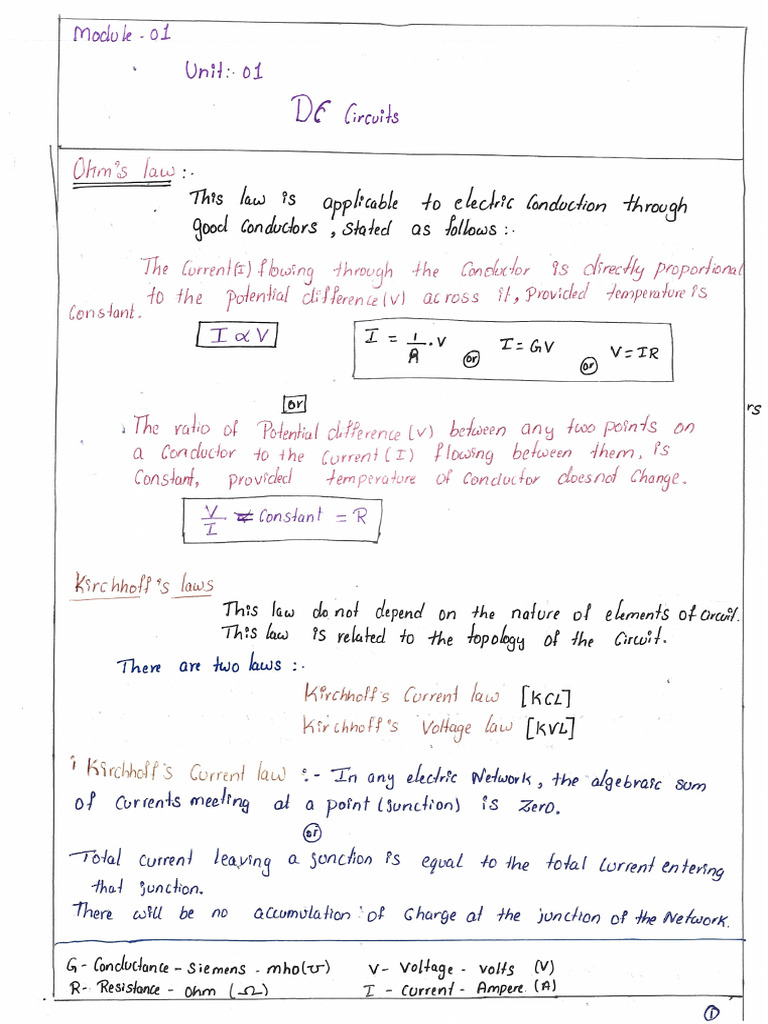 Module - 01
Unit:- 01
DC Circuits
Ohm's law :-
This law is applicable to electric conduction through
good conductors, stated as follows :-
The Current (I) flowing through the Conductor is directly proportional
to the potential difference (V) across it, Provided temperature is
Constant.
I ∝ V
I = 1/R . V or I = GV or V = IR
or
rs
The ratio of Potential difference (V) between any two points on
a Conductor to the Current (I) flowing between them, is
Constant, provided temperature of Conductor doesnot Change.
V/I = Constant = R
Kirchhoff's laws
This law do not depend on the nature of elements of circuit.
This law is related to the topology of the Circuit.
There are two laws :-
Kirchhoff's Current law [KCL]
Kirchhoff's Voltage law [KVL]
i Kirchhoff's Current law :- In any electric Network, the algebraic sum
of currents meeting at a point (junction) is Zero.
or
Total current leaving a junction is equal to the total current entering
that junction.
There will be no accumulation of Charge at the junction of the Network.
G - Conductance - Siemens - mho (℧) V - Voltage - volts (V)
R - Resistance - Ohm (Ω) I - Current - Ampere (A)
1